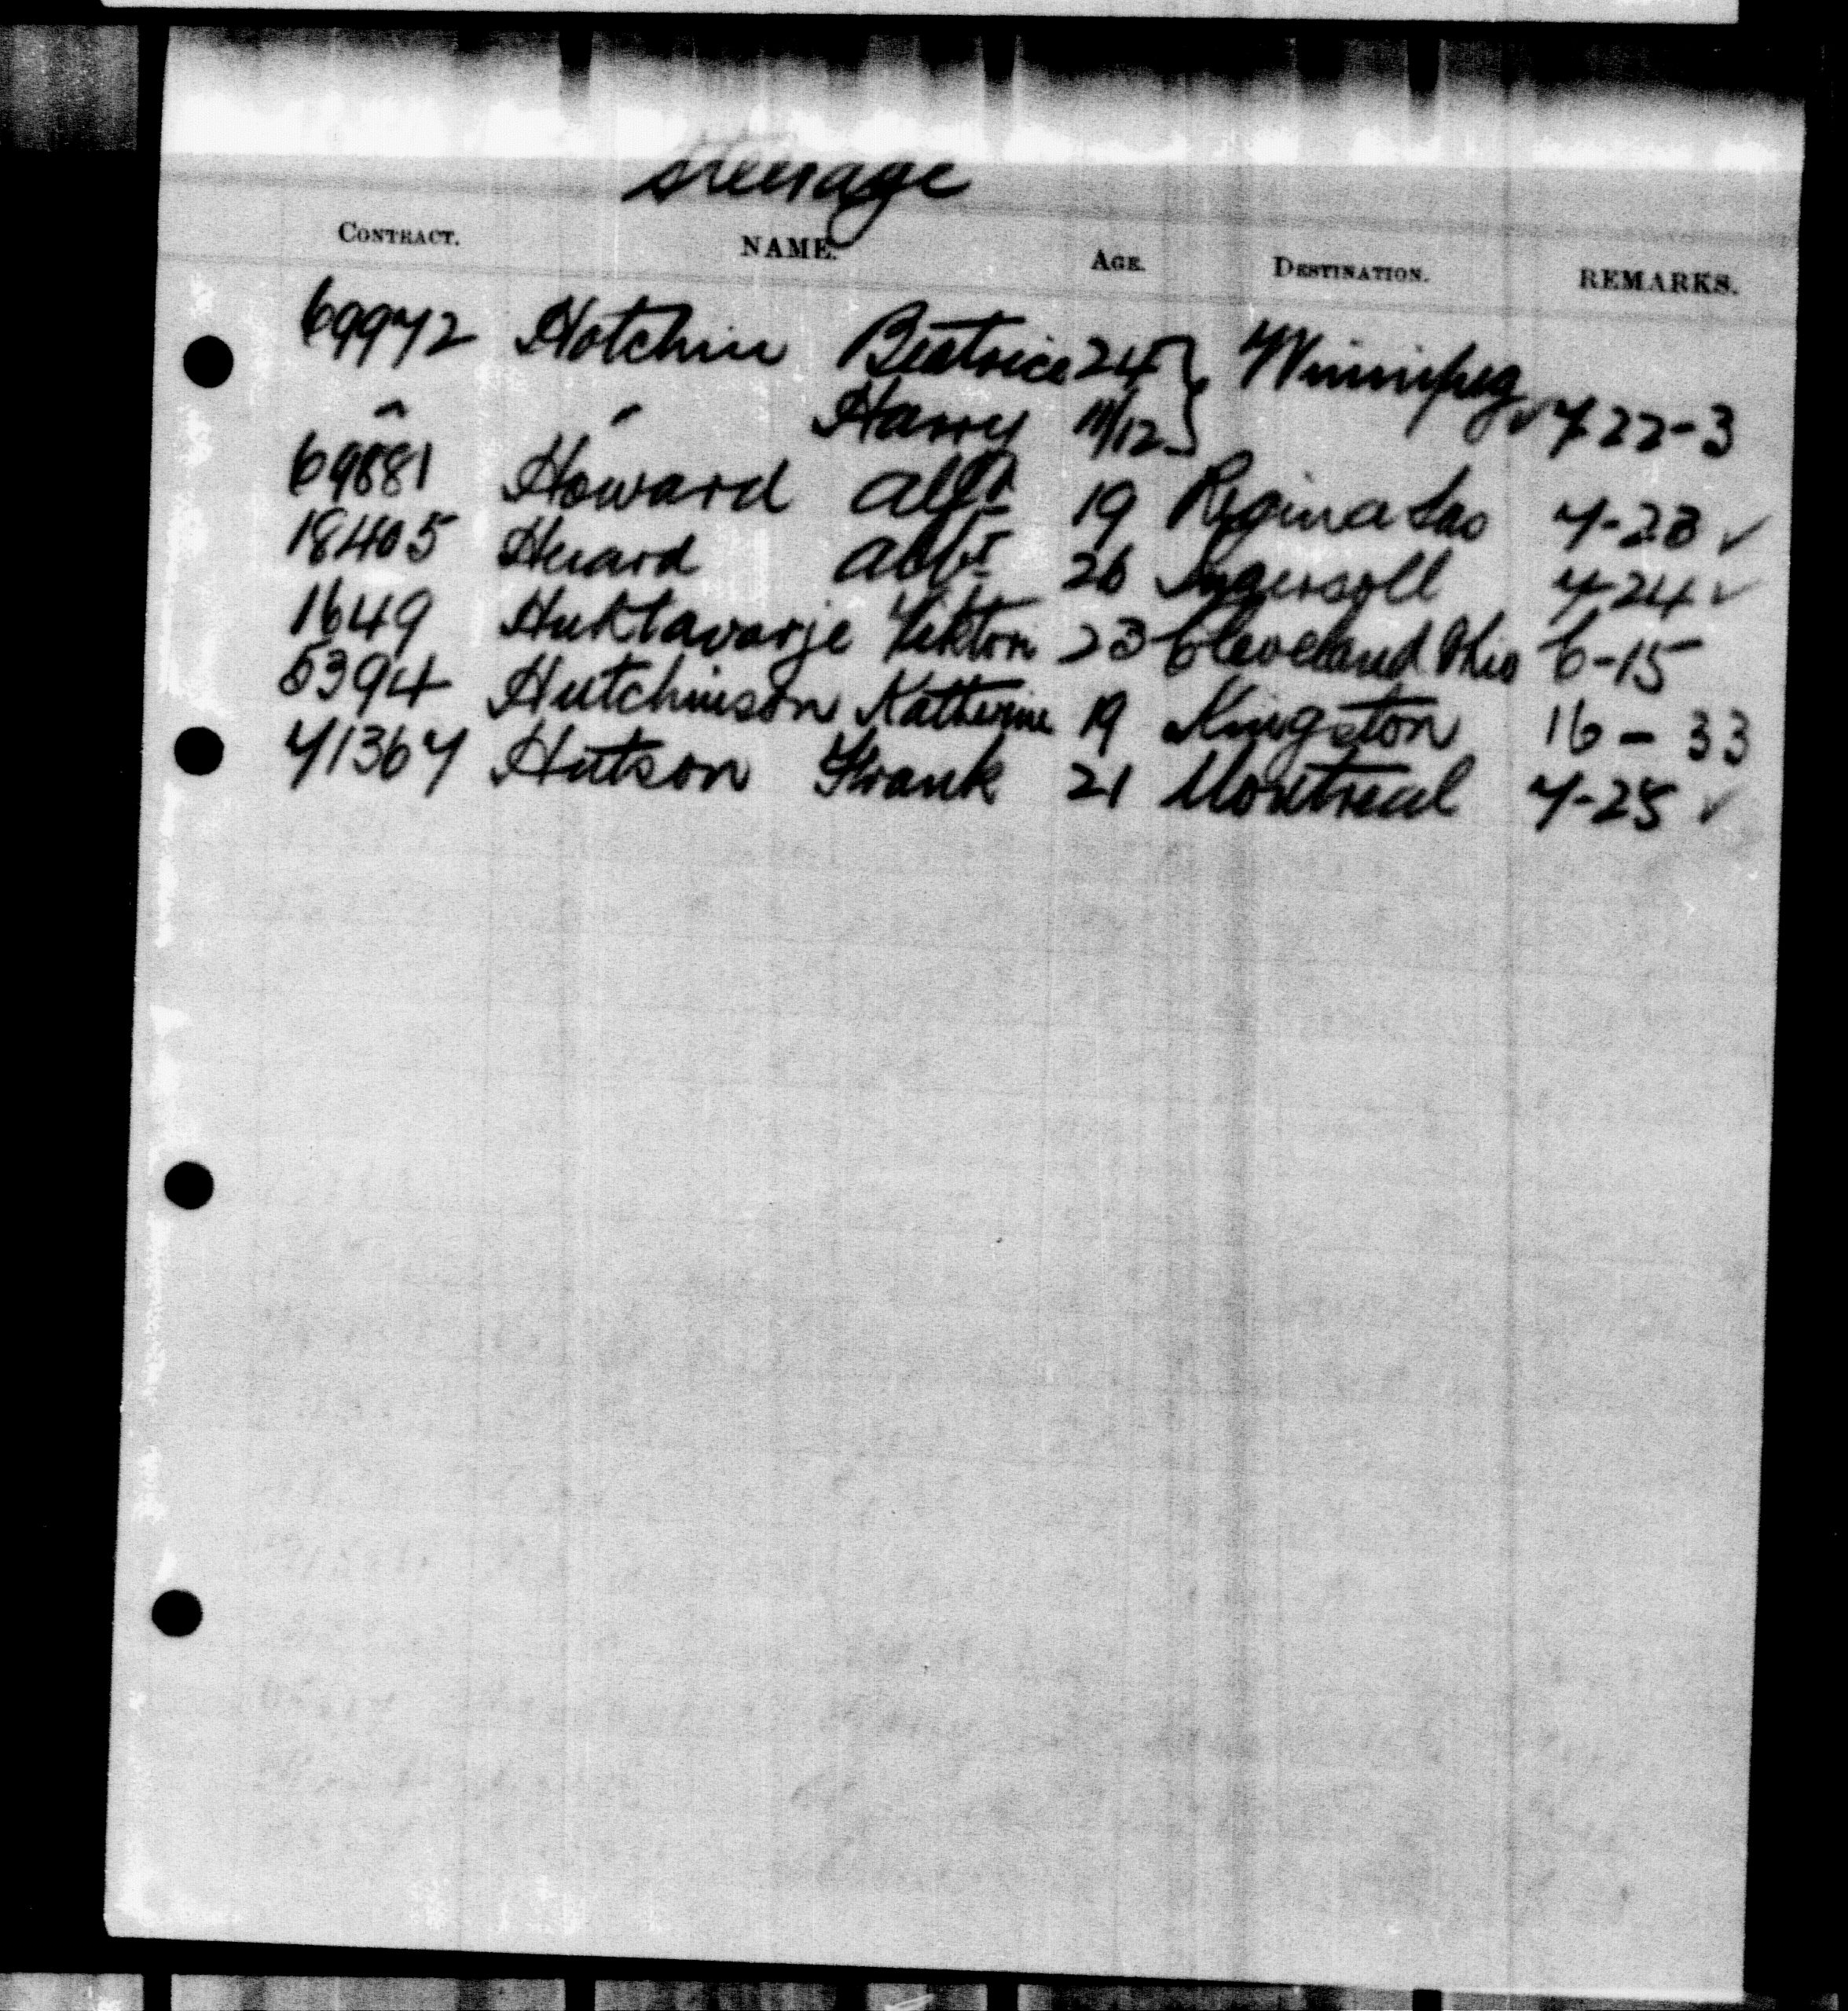 Steerage
CONTRACT. NAME. AGE. DESTINATION. REMARKS.
69972 Hotchin Beatrice 24 } Winnipeg
" " Harry 11/12 } ✓ 7 22-3
69881 Howard Alfd 19 Regina Sas 7-23 ✓
18405 Huard Albt 26 Ingersoll 7-24 ✓
1649 Huktavarje Viktori 23 Cleveland Ohio 6-15
5394 Hutchinson Katherine 19 Kingston 16-33
71367 Hutson Frank 21 Montreal 7-25 ✓